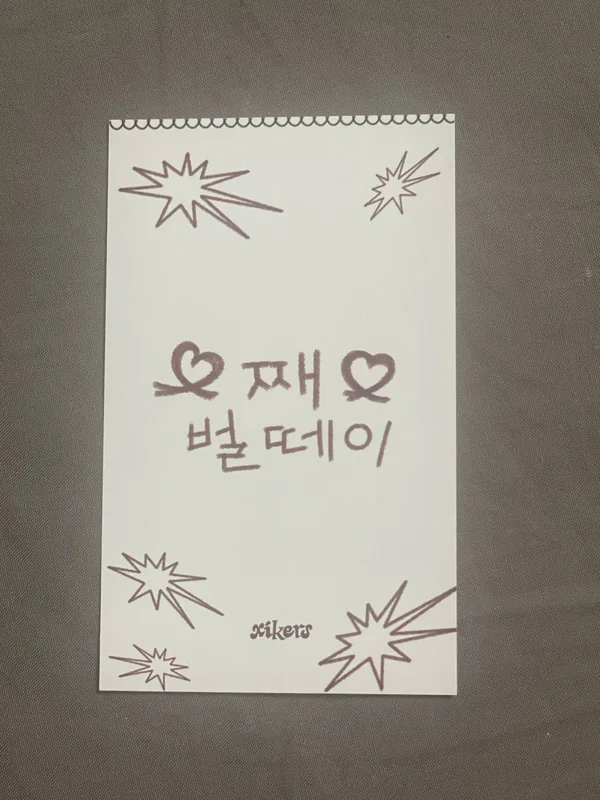 째
벌떼이
xikers